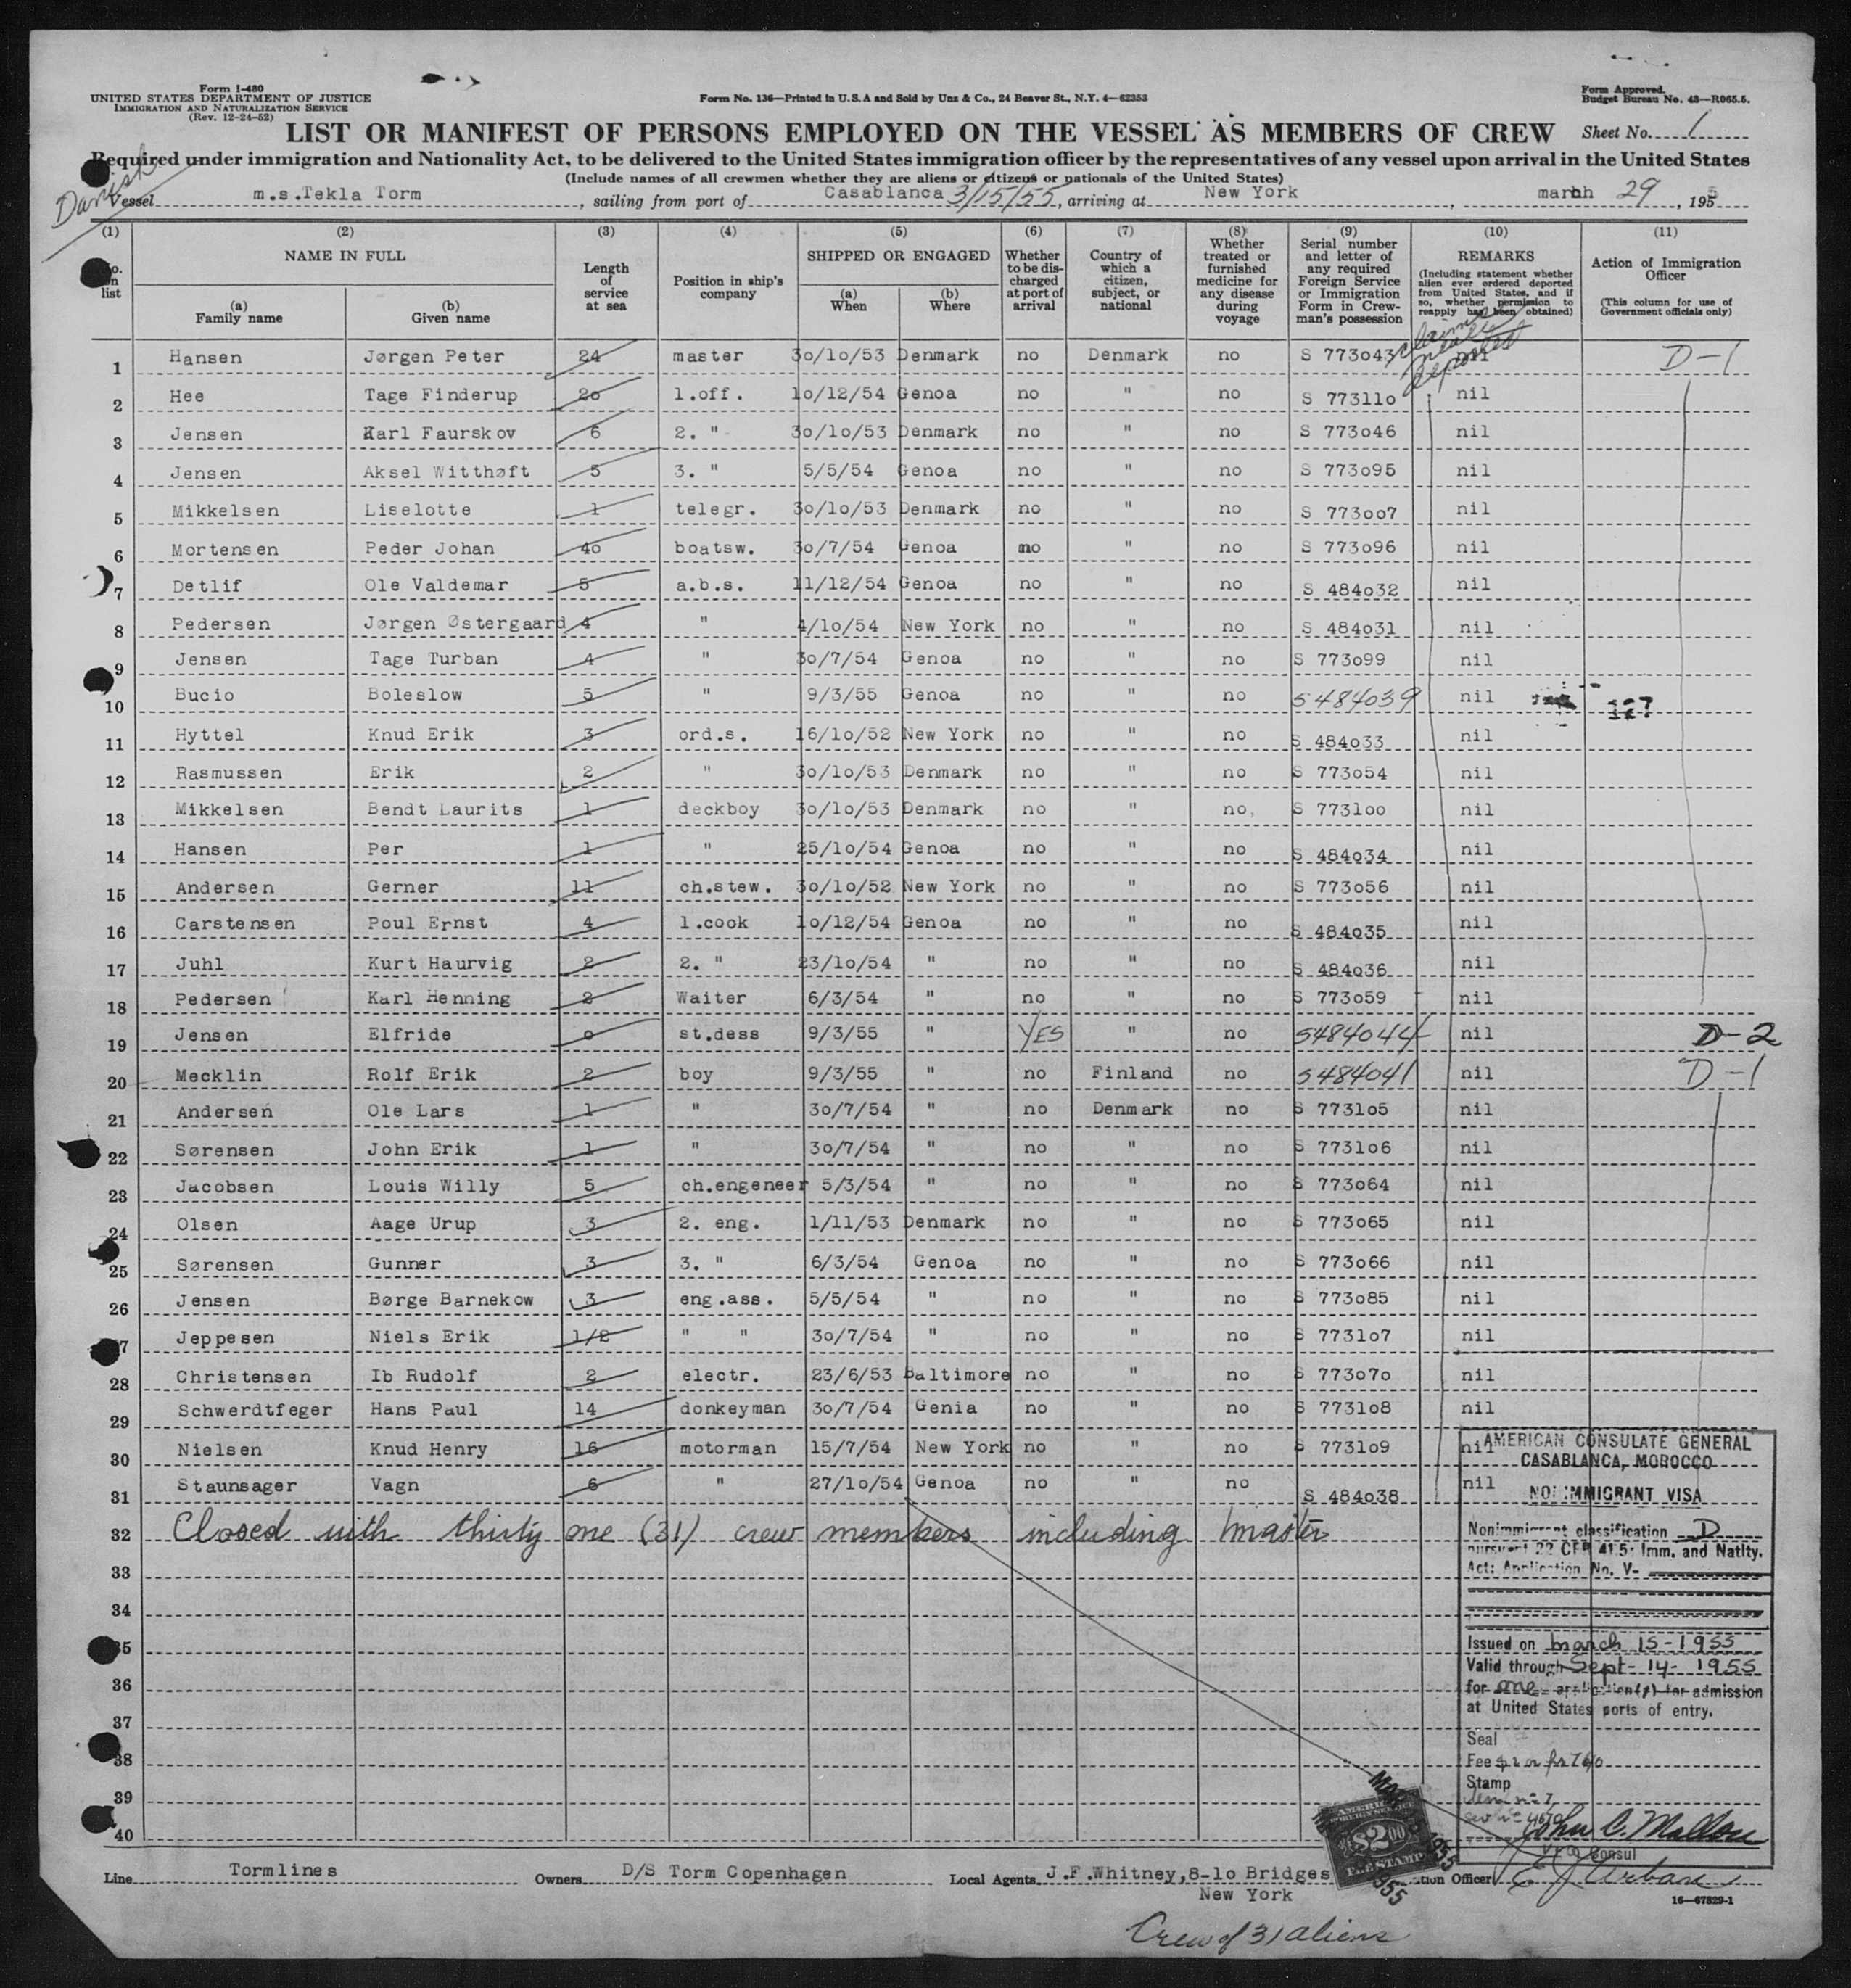 Form I-480
UNITED STATES DEPARTMENT OF JUSTICE
IMMIGRATION AND NATURALIZATION SERVICE
(Rev. 12-24-52)
Form No. 136—Printed in U.S.A and Sold by Unz & Co., 24 Beaver St., N.Y. 4—62353
Form Approved.
Budget Bureau No. 43—R065.5.
LIST OR MANIFEST OF PERSONS EMPLOYED ON THE VESSEL AS MEMBERS OF CREW
Sheet No. 1
Required under immigration and Nationality Act, to be delivered to the United States immigration officer by the representatives of any vessel upon arrival in the United States
(Include names of all crewmen whether they are aliens or citizens or nationals of the United States)
Danish
Vessel m.s.Tekla Torm, sailing from port of Casablanca 3/15/55, arriving at New York, march 29, 1955
(1) (2) (3) (4) (5) (6) (7) (8) (9) (10) (11)
No. on list
NAME IN FULL
(a) Family name
(b) Given name
Length of service at sea
Position in ship's company
SHIPPED OR ENGAGED
(a) When
(b) Where
Whether to be discharged at port of arrival
Country of which a citizen, subject, or national
Whether treated or furnished medicine for any disease during voyage
Serial number and letter of any required Foreign Service or Immigration Form in Crewman's possession
REMARKS
(Including statement whether alien ever ordered deported from United States, and if so, whether permission to reapply has been obtained)
Action of Immigration Officer
(This column for use of Government officials only)
claims never deported
1 Hansen Jørgen Peter 24 master 30/10/53 Denmark no Denmark no S 773043 nil D-1
2 Hee Tage Finderup 20 1.off. 10/12/54 Genoa no " no S 773110 nil
3 Jensen Karl Faurskov 6 2. " 30/10/53 Denmark no " no S 773046 nil
4 Jensen Aksel Witthøft 5 3. " 5/5/54 Genoa no " no S 773095 nil
5 Mikkelsen Liselotte 1 telegr. 30/10/53 Denmark no " no S 773007 nil
6 Mortensen Peder Johan 40 boatsw. 30/7/54 Genoa no " no S 773096 nil
7 Detlif Ole Valdemar 5 a.b.s. 11/12/54 Genoa no " no S 484032 nil
8 Pedersen Jørgen Østergaard 4 " 4/10/54 New York no " no S 484031 nil
9 Jensen Tage Turban 4 " 30/7/54 Genoa no " no S 773099 nil
10 Bucio Boleslow 5 " 9/3/55 Genoa no " no S 484039 nil 127
11 Hyttel Knud Erik 3 ord.s. 16/10/52 New York no " no S 484033 nil
12 Rasmussen Erik 2 " 30/10/53 Denmark no " no S 773054 nil
13 Mikkelsen Bendt Laurits 1 deckboy 30/10/53 Denmark no " no, S 773100 nil
14 Hansen Per 1 " 25/10/54 Genoa no " no S 484034 nil
15 Andersen Gerner 11 ch.stew. 30/10/52 New York no " no S 773056 nil
16 Carstensen Poul Ernst 4 1.cook 10/12/54 Genoa no " no S 484035 nil
17 Juhl Kurt Haurvig 2 2. " 23/10/54 " no " no S 484036 nil
18 Pedersen Karl Henning 2 Waiter 6/3/54 " no " no S 773059 nil
19 Jensen Elfride 0 st.dess 9/3/55 " YES " no S484044 nil D-2
20 Mecklin Rolf Erik 2 boy 9/3/55 " no Finland no S484041 nil D-1
21 Andersen Ole Lars 1 " 30/7/54 " no Denmark no S 773105 nil
22 Sørensen John Erik 1 " 30/7/54 " no " no S 773106 nil
23 Jacobsen Louis Willy 5 ch.engeneer 5/3/54 " no " no S 773064 nil
24 Olsen Aage Urup 3 2. eng. 1/11/53 Denmark no " no S 773065 nil
25 Sørensen Gunner 3 3. " 6/3/54 Genoa no " no S 773066 nil
26 Jensen Børge Barnekow 3 eng.ass. 5/5/54 " no " no S 773085 nil
27 Jeppesen Niels Erik 1/2 " " 30/7/54 " no " no S 773107 nil
28 Christensen Ib Rudolf 2 electr. 23/6/53 Baltimore no " no S 773070 nil
29 Schwerdtfeger Hans Paul 14 donkeyman 30/7/54 Genia no " no S 773108 nil
30 Nielsen Knud Henry 16 motorman 15/7/54 New York no " no S 773109 nil
31 Staunsager Vagn 6 " 27/10/54 Genoa no " no S 484038 nil
32 Closed with thirty one (31) crew members including master
33
34
35
36
37
38
39
40
AMERICAN CONSULATE GENERAL
CASABLANCA, MOROCCO
NONIMMIGRANT VISA
Nonimmigrant classification D
pursuant 22 CFR 41.5: Imm. and Natlty.
Act: Application No. V-
Issued on march 15-1955
Valid through Sept- 14- 1955
for one application(s) for admission
at United States ports of entry.
Seal
Fee
Stamp
John C. Mallon
Vice Consul
AMERICAN
FOREIGN SERVICE
$2.00
FEE STAMP
1955
Line Tormlines
Owners D/S Torm Copenhagen
Local Agents J.F.Whitney,8-10 Bridges
New York
tion Officer E J Urban
16—67829-1
Crew of 31 aliens